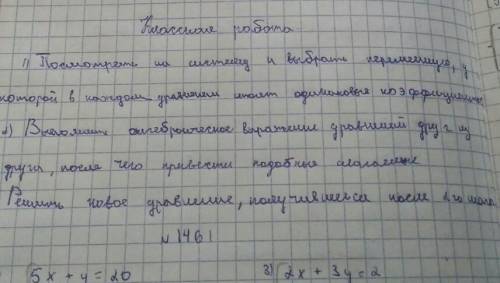 Классная работа
1) Посмотреть на систему и выбрать переменную, у
которой в каждом уравнении стоят одинаковые коэффициенты
2) Выполнить алгеброическое выражение уравнений друг из
друга, после чего привести подобные слагаемые
Решить новое уравнение, получившееся после 2го шага
№1461
5x + y = 20 3) 2x + 3y = 2